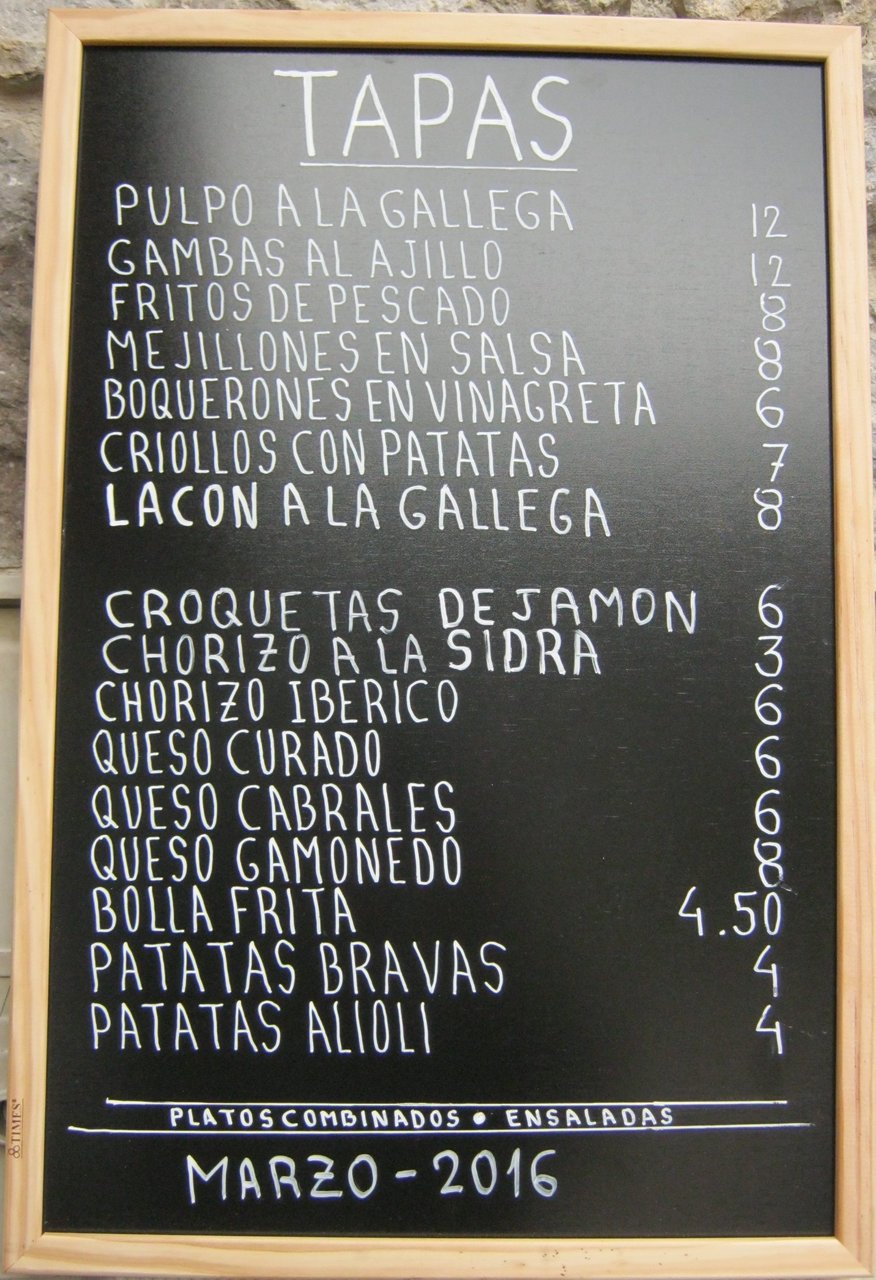 TAPAS
PULPO A LA GALLEGA 12
GAMBAS AL AJILLO 12
FRITOS DE PESCADO 8
MEJILLONES EN SALSA 8
BOQUERONES EN VINAGRETA 6
CRIOLLOS CON PATATAS 7
LACON A LA GALLEGA 8
CROQUETAS DE JAMON 6
CHORIZO A LA SIDRA 3
CHORIZO IBERICO 6
QUESO CURADO 6
QUESO CABRALES 6
QUESO GAMONEDO 8
BOLLA FRITA 4.50
PATATAS BRAVAS 4
PATATAS ALIOLI 4
PLATOS COMBINADOS • ENSALADAS
MARZO - 2016
TIMES